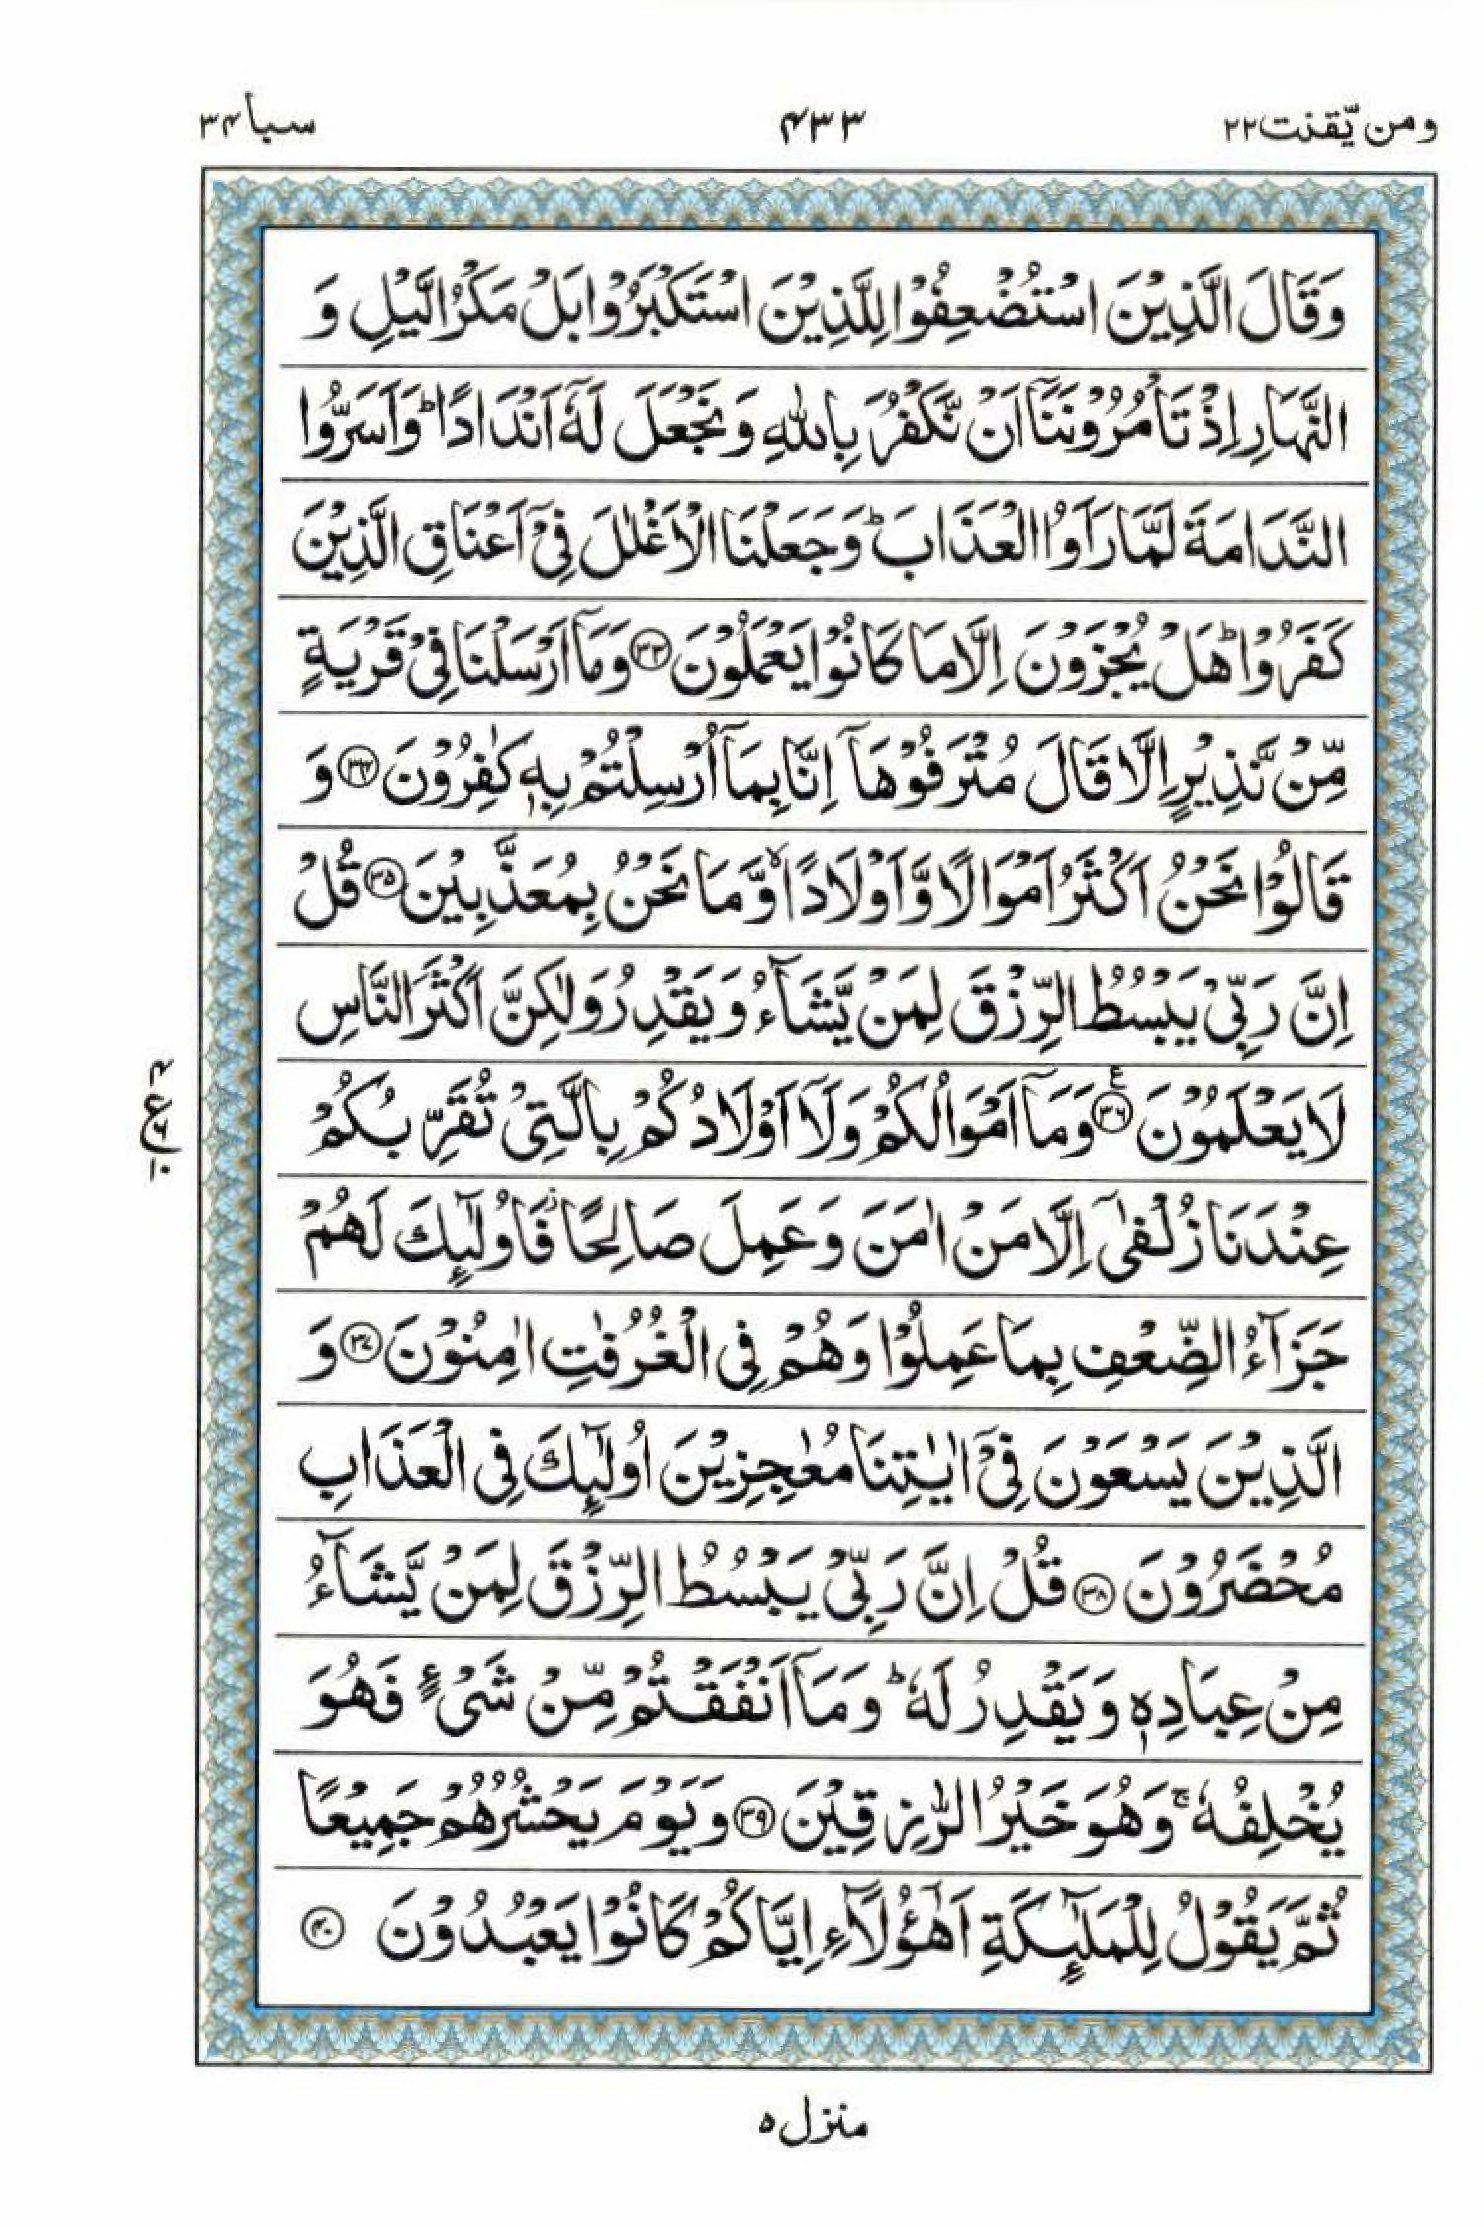 ومن یّقنت ۲۲ ۴۳۳ سبأ ۳۴
وَقَالَ الَّذِيْنَ اسْتُضْعِفُوْا لِلَّذِيْنَ اسْتَكْبَرُوْا بَلْ مَكْرُ الَّيْلِ وَ
النَّهَارِ اِذْ تَاْمُرُوْنَنَاۤ اَنْ نَّكْفُرَ بِاللّٰهِ وَنَجْعَلَ لَهٗۤ اَنْدَادًا ؕ وَاَسَرُّوا
النَّدَامَةَ لَمَّا رَاَوُا الْعَذَابَ ؕ وَجَعَلْنَا الْاَغْلٰلَ فِيْۤ اَعْنَاقِ الَّذِيْنَ
كَفَرُوْا ؕ هَلْ يُجْزَوْنَ اِلَّا مَا كَانُوْا يَعْمَلُوْنَ ﴿۳۳﴾ وَمَاۤ اَرْسَلْنَا فِيْ قَرْيَةٍ
مِّنْ نَّذِيْرٍ اِلَّا قَالَ مُتْرَفُوْهَاۤ اِنَّا بِمَاۤ اُرْسِلْتُمْ بِهٖ كٰفِرُوْنَ ﴿۳۴﴾ وَ
قَالُوْا نَحْنُ اَكْثَرُ اَمْوَالًا وَّاَوْلَادًا ۙ وَّمَا نَحْنُ بِمُعَذَّبِيْنَ ﴿۳۵﴾ قُلْ
اِنَّ رَبِّيْ يَبْسُطُ الرِّزْقَ لِمَنْ يَّشَآءُ وَيَقْدِرُ وَلٰكِنَّ اَكْثَرَ النَّاسِ
لَا يَعْلَمُوْنَ ﴿۳۶﴾ وَمَاۤ اَمْوَالُكُمْ وَلَاۤ اَوْلَادُكُمْ بِالَّتِيْ تُقَرِّبُكُمْ
عِنْدَنَا زُلْفٰىۤ اِلَّا مَنْ اٰمَنَ وَعَمِلَ صَالِحًا ۫ فَاُولٰٓئِكَ لَهُمْ
جَزَآءُ الضِّعْفِ بِمَا عَمِلُوْا وَهُمْ فِي الْغُرُفٰتِ اٰمِنُوْنَ ﴿۳۷﴾ وَ
الَّذِيْنَ يَسْعَوْنَ فِيْۤ اٰيٰتِنَا مُعٰجِزِيْنَ اُولٰٓئِكَ فِي الْعَذَابِ
مُحْضَرُوْنَ ﴿۳۸﴾ قُلْ اِنَّ رَبِّيْ يَبْسُطُ الرِّزْقَ لِمَنْ يَّشَآءُ
مِنْ عِبَادِهٖ وَيَقْدِرُ لَهٗ ؕ وَمَاۤ اَنْفَقْتُمْ مِّنْ شَيْءٍ فَهُوَ
يُخْلِفُهٗ ۚ وَهُوَ خَيْرُ الرّٰزِقِيْنَ ﴿۳۹﴾ وَيَوْمَ يَحْشُرُهُمْ جَمِيْعًا
ثُمَّ يَقُوْلُ لِلْمَلٰٓئِكَةِ اَهٰۤؤُلَآءِ اِيَّاكُمْ كَانُوْا يَعْبُدُوْنَ ﴿۴۰﴾
۴
ع ۶
۱۰
منزل ۵